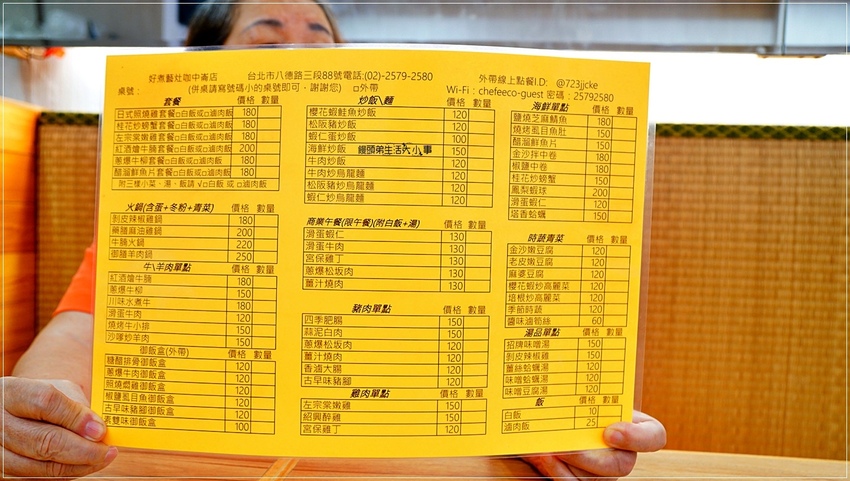 好煮藝灶咖中崙店 台北市八德路三段88號電話:(02)-2579-2580 外帶線上點餐I.D: @723jjcke
桌號: (併桌請寫號碼小的桌號即可,謝謝您) □外帶 Wi-Fi:chefeeco-guest 密碼:25792580
套餐 價格 數量
日式照燒雞套餐□白飯或□滷肉飯 180
桂花炒螃蟹套餐□白飯或□滷肉飯 180
左宗棠嫩雞套餐□白飯或□滷肉飯 180
紅酒燴牛腩套餐□白飯或□滷肉飯 200
蔥爆牛柳套餐□白飯或□滷肉飯 180
醋溜鮮魚片套餐□白飯或□滷肉飯 180
附三樣小菜、湯、飯請V□白飯 或 □滷肉飯
火鍋(含蛋+冬粉+青菜) 價格 數量
剝皮辣椒雞鍋 180
藥膳麻油雞鍋 200
牛腩火鍋 220
御膳羊肉鍋 250
牛\羊肉單點 價格 數量
紅酒燴牛腩 180
蔥爆牛柳 150
川味水煮牛 180
滑蛋牛肉 120
燒烤牛小排 150
沙嗲炒羊肉 150
御飯盒(外帶) 價格 數量
糖醋排骨御飯盒 120
蔥爆牛肉御飯盒 120
照燒嫩雞御飯盒 120
椒鹽虱目魚御飯盒 120
古早味豬腳御飯盒 120
素雙味御飯盒 100
炒飯\麵 價格 數量
櫻花蝦鮭魚炒飯 120
松阪豬炒飯 120
蝦仁蛋炒飯 100
海鮮炒飯 150
饅頭弟生活大小事
牛肉炒飯 120
牛肉炒烏龍麵 120
松阪豬炒烏龍麵 120
蝦仁炒烏龍麵 120
商業午餐(限午餐)(附白飯+湯) 價格 數量
滑蛋蝦仁 130
滑蛋牛肉 130
宮保雞丁 130
蔥爆松坂肉 130
薑汁燒肉 130
豬肉單點 價格 數量
四季肥腸 150
蒜泥白肉 150
蔥爆松坂肉 120
薑汁燒肉 120
香滷大腸 120
古早味豬腳 120
雞肉單點 價格 數量
左宗棠嫩雞 150
紹興醉雞 150
宮保雞丁 120
海鮮單點 價格 數量
鹽燒芝麻鯖魚 120
燒烤虱目魚肚 150
醋溜鮮魚片 150
金沙拌中卷 180
椒鹽中卷 180
桂花炒螃蟹 150
鳳梨蝦球 200
滑蛋蝦仁 120
塔香蛤蠣 150
時蔬青菜 價格 數量
金沙嫩豆腐 120
老皮嫩豆腐 120
麻婆豆腐 120
櫻花蝦炒高麗菜 120
培根炒高麗菜 120
季節時蔬 120
醬味滷筍絲 60
湯品單點 價格 數量
招牌味噌湯 150
剝皮辣椒雞 150
薑絲蛤蠣湯 120
味噌蛤蠣湯 120
味噌豆腐湯 120
飯 價格 數量
白飯 10
滷肉飯 25